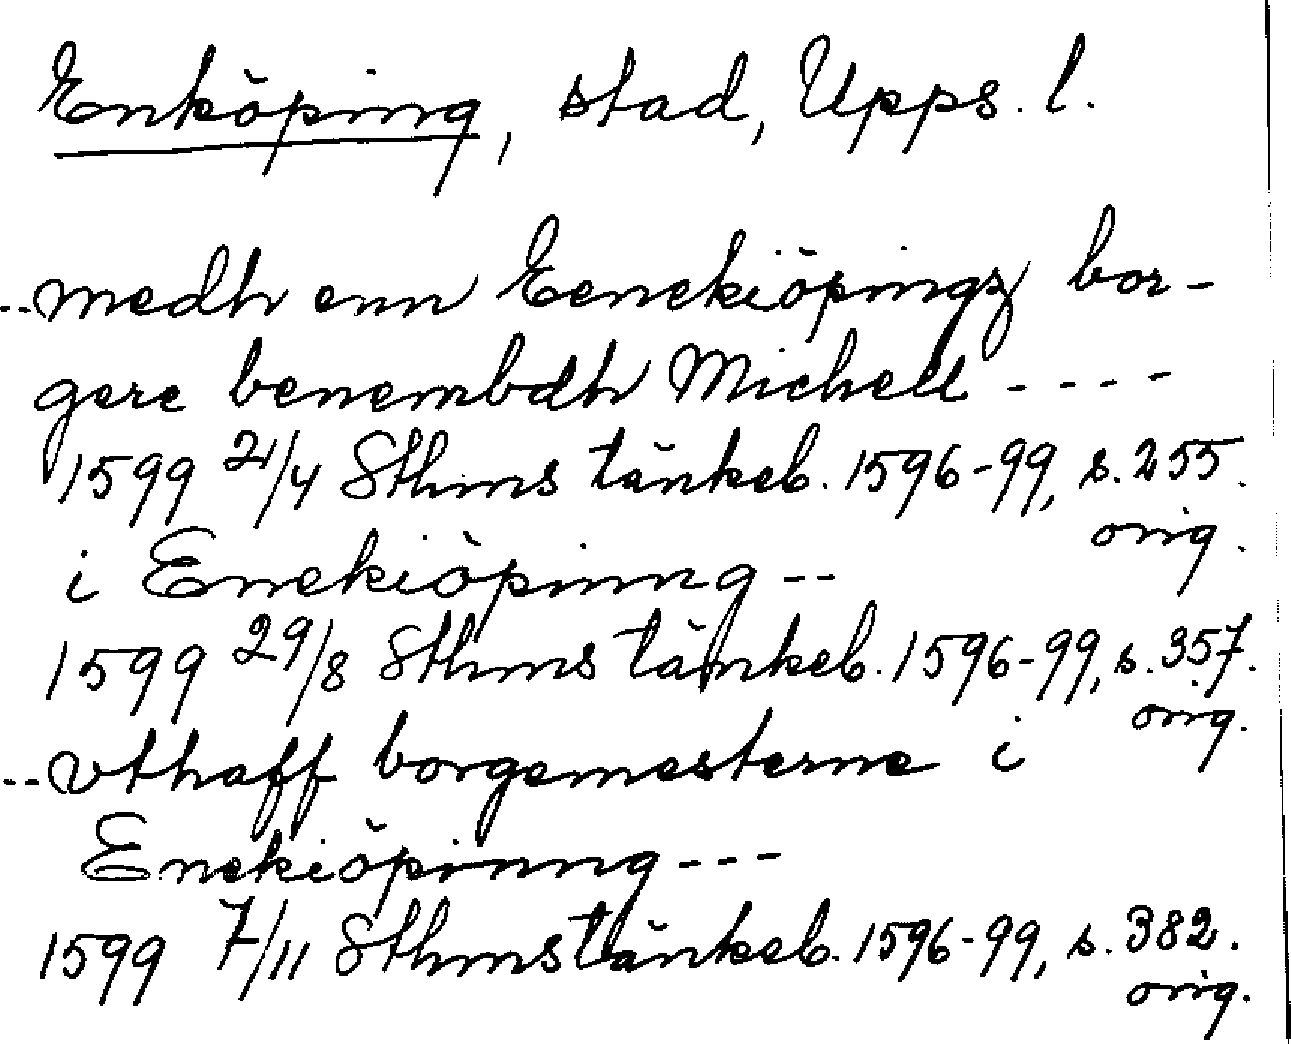 Enköping, stad, Upps. l.
--medh enn Eenekiöpingz bor-
gere benembdh Michell ----
1599 21/4 Sthms tänkeb. 1596-99, s. 255.
orig.
i Enekiöpinng --
1599 29/8 Sthms tänkeb. 1596-99, s. 357.
orig.
--vthaff borgemesterne i
Enekiöpinng ---
1599 7/11 Sthms tänkeb. 1596-99, s. 382.
orig.